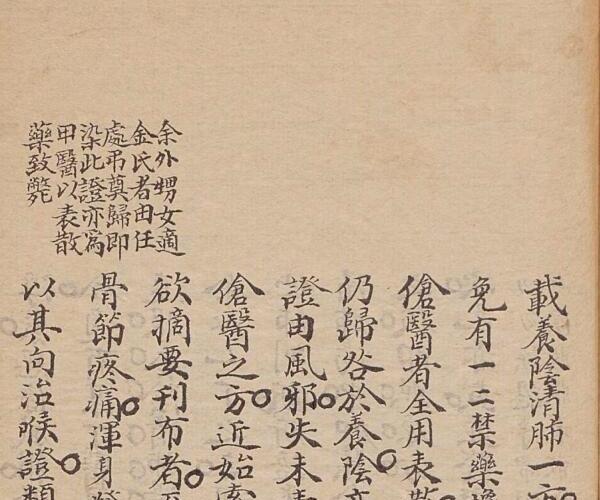 余外甥女適
金氏者由任
處弔奠歸即
染此證亦爲
甲醫以表散
藥致斃
載養陰清肺一
免有一二禁藥
傖醫者全用表散
仍歸咎於養陰
證由風邪失未表
傖醫之方近始
欲摘要刊布者
骨節疼痛渾身
以其向治喉證類